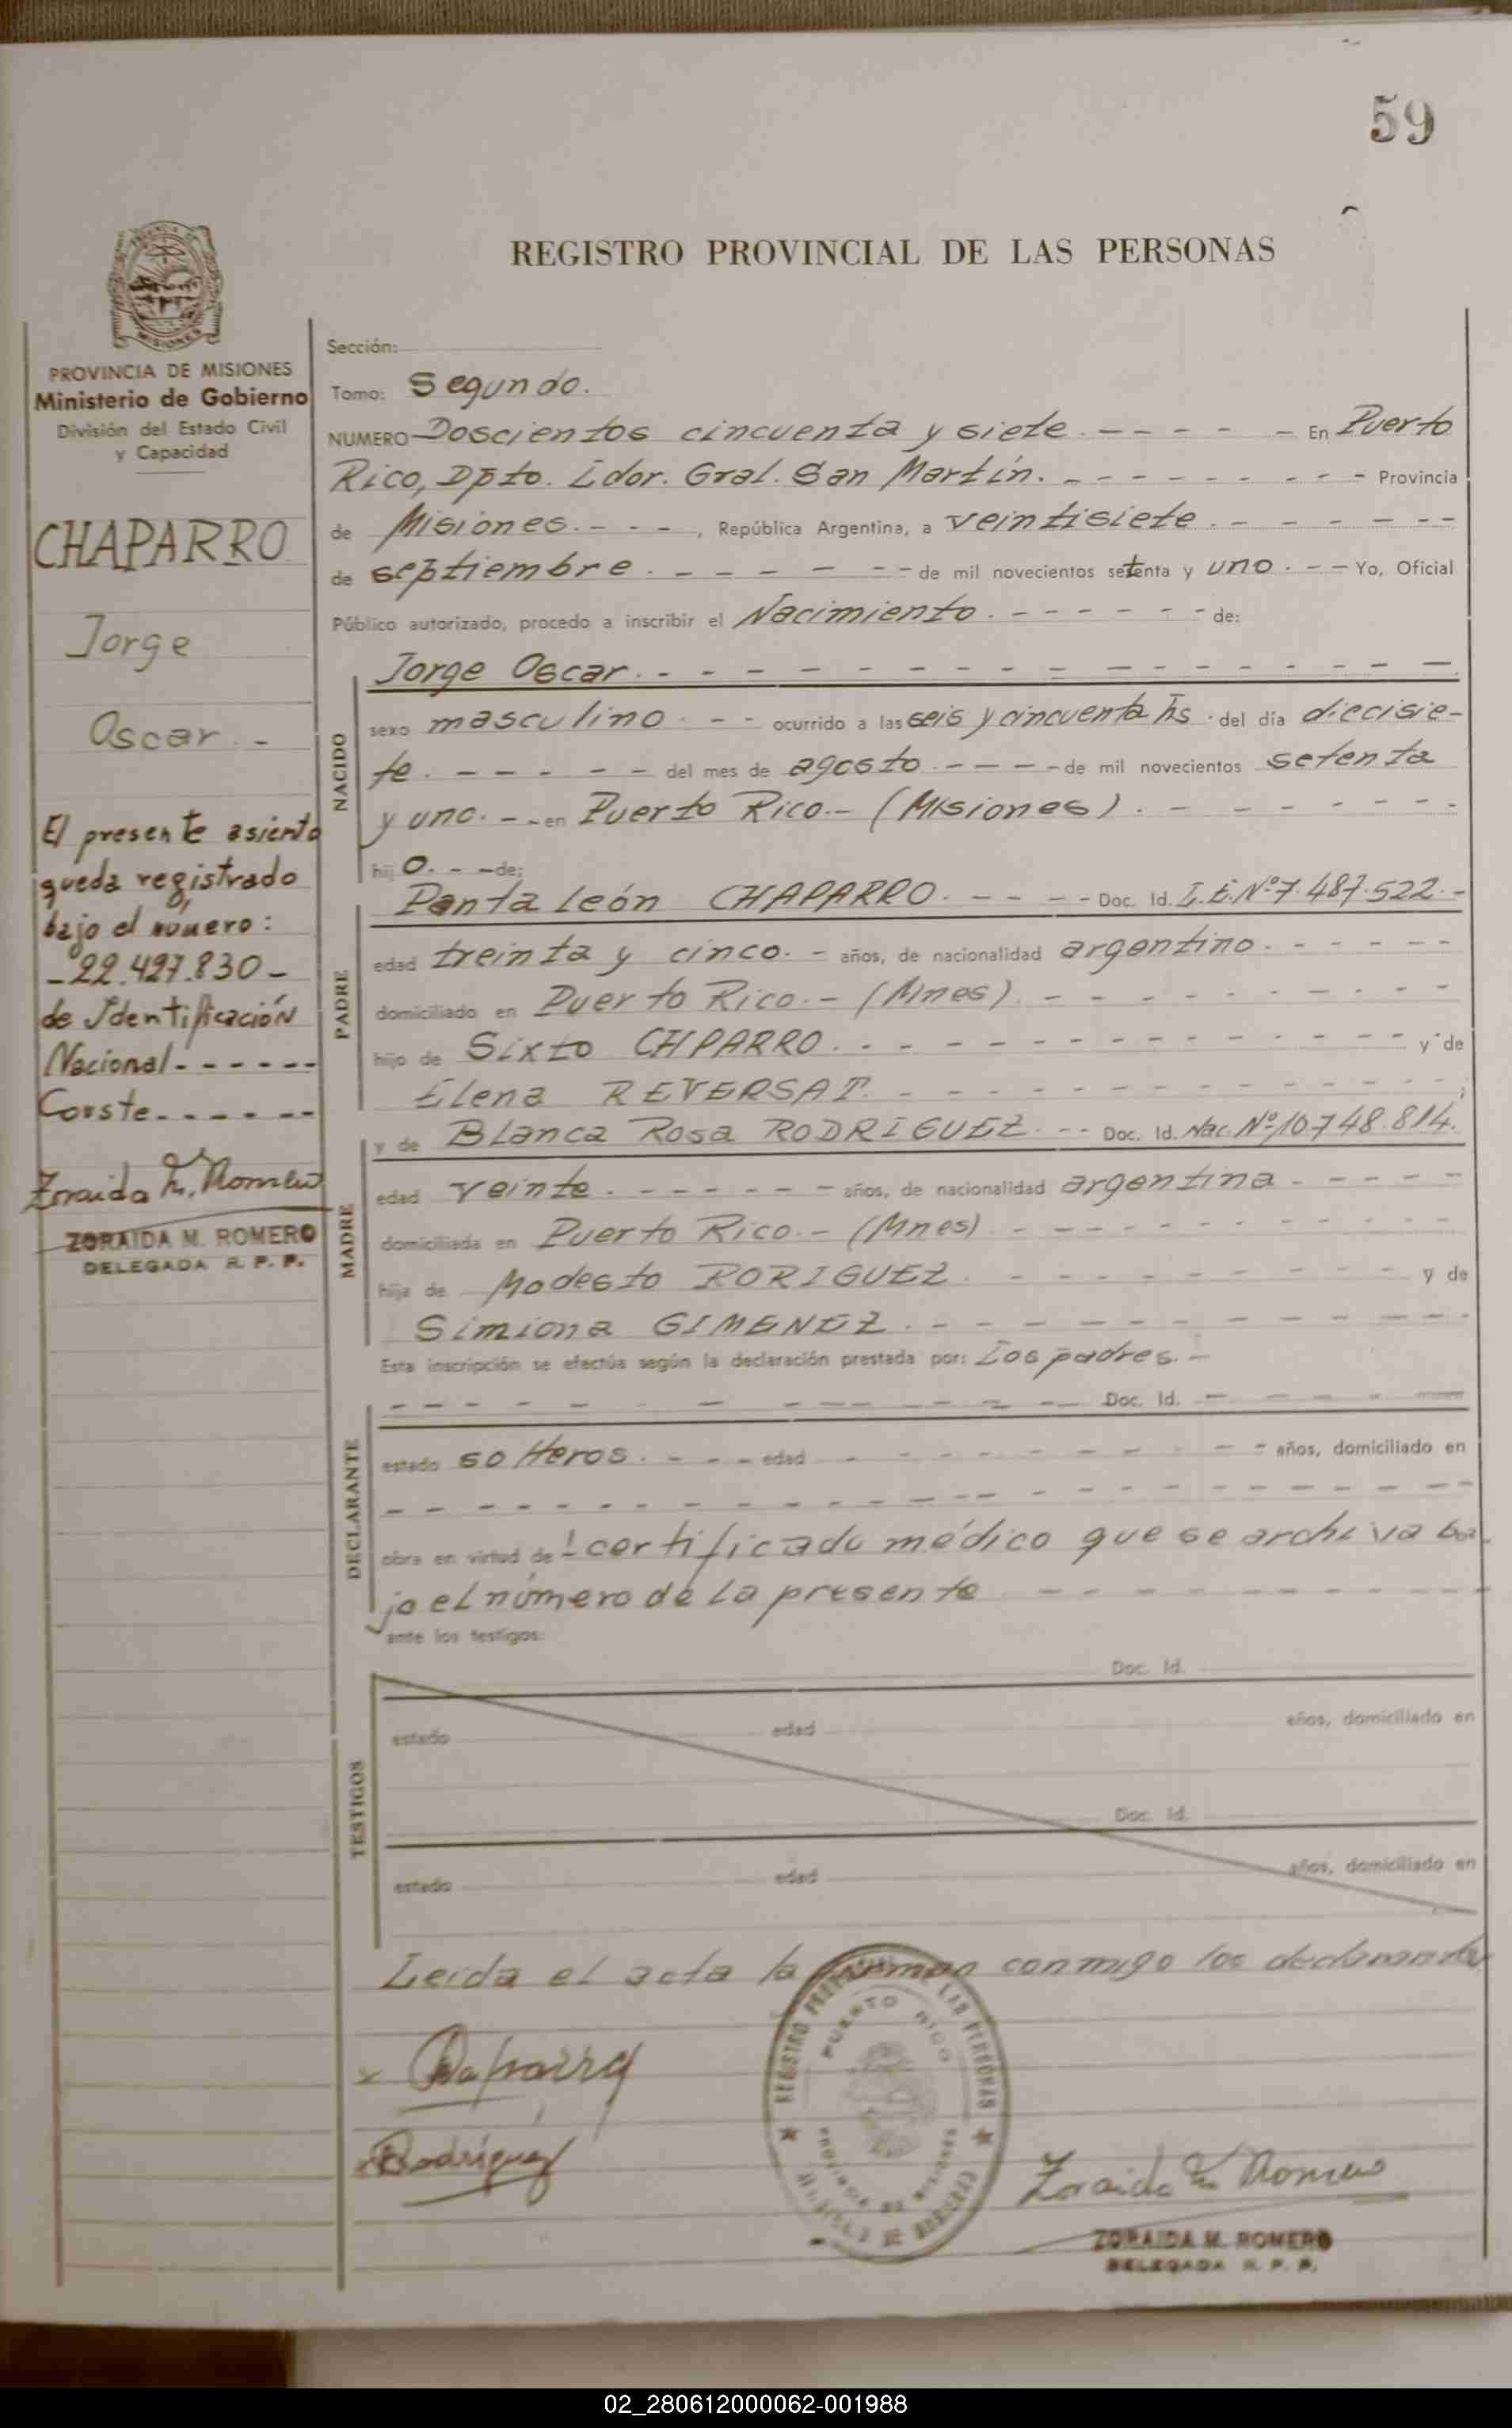 59
REGISTRO PROVINCIAL DE LAS PERSONAS
PROVINCIA DE MISIONES
Ministerio de Gobierno
División del Estado Civil
y Capacidad
CHAPARRO
Jorge
Oscar -
El presente asiento
queda registrado
bajo el número:
-22.427.830-
de Identificación
Nacional - - - - - -
Conste - - - - - -
Zoraida M. Romero
ZORAIDA M. ROMERO
DELEGADA R. P. P.
Sección:
Tomo: Segundo.
NUMERO Doscientos cincuenta y siete. - - - - - En Puerto
Rico, Dpto. Ldor. Gral. San Martín. - - - - - - - - - Provincia
de Misiones. - - -, República Argentina, a veintisiete. - - - - - - -
de septiembre. - - - - - - de mil novecientos setenta y uno. - - Yo, Oficial
Público autorizado, procedo a inscribir el Nacimiento. - - - - - - - de:
NACIDO
Jorge Oscar. - - - - - - - - - - - - - - - - -
sexo masculino. - - ocurrido a las seis y cincuenta hs. del día diecisie-
te. - - - - - - del mes de agosto. - - - - de mil novecientos setenta
y uno. - - en Puerto Rico.- (Misiones). - - - - - - - -
hij o. - - de:
PADRE
Pantaleón CHAPARRO. - - - - Doc. Id. L.E.Nº7.487.522.-
edad treinta y cinco. - años, de nacionalidad argentino. - - - - -
domiciliado en Puerto Rico.- (Mnes). - - - - - - - - - -
hijo de Sixto CHPARRO. - - - - - - - - - - - - - y de
Elena REVERSAT. - - - - - - - - - - - - - - ;
MADRE
y de Blanca Rosa RODRIGUEZ. - - Doc. Id. Nac. Nº10.748.814.
edad veinte. - - - - - - - años, de nacionalidad argentina - - - - -
domiciliada en Puerto Rico.- (Mnes) - - - - - - - - - - -
hija de Modesto RORIGUEZ. - - - - - - - - - y de
Simiona GIMENEZ. - - - - - - - - - - - - -
Esta inscripción se efectúa según la declaración prestada por: Los padres.-
DECLARANTE
- - - - - - - - - - - - - - Doc. Id. - - - - -
estado solteros. - - - edad - - - - - - - - - - - años, domiciliado en
- - - - - - - - - - - - - - - - - - - - - -
obra en virtud de 1 certificado médico que se archiva ba
jo el número de la presente - - - - - - - - - - -
ante los testigos:
TESTIGOS
Doc. Id.
estado edad años, domiciliado en
Doc. Id.
estado edad años, domiciliado en
Leida el acta la firman conmigo los declarantes
x Chaparro
x Rodríguez
REGISTRO PROVINCIAL DE LAS PERSONAS
PUERTO RICO
PROVINCIA DE MISIONES
Zoraida M. Romero
ZORAIDA M. ROMERO
DELEGADA R. P. P.
02_280612000062-001988